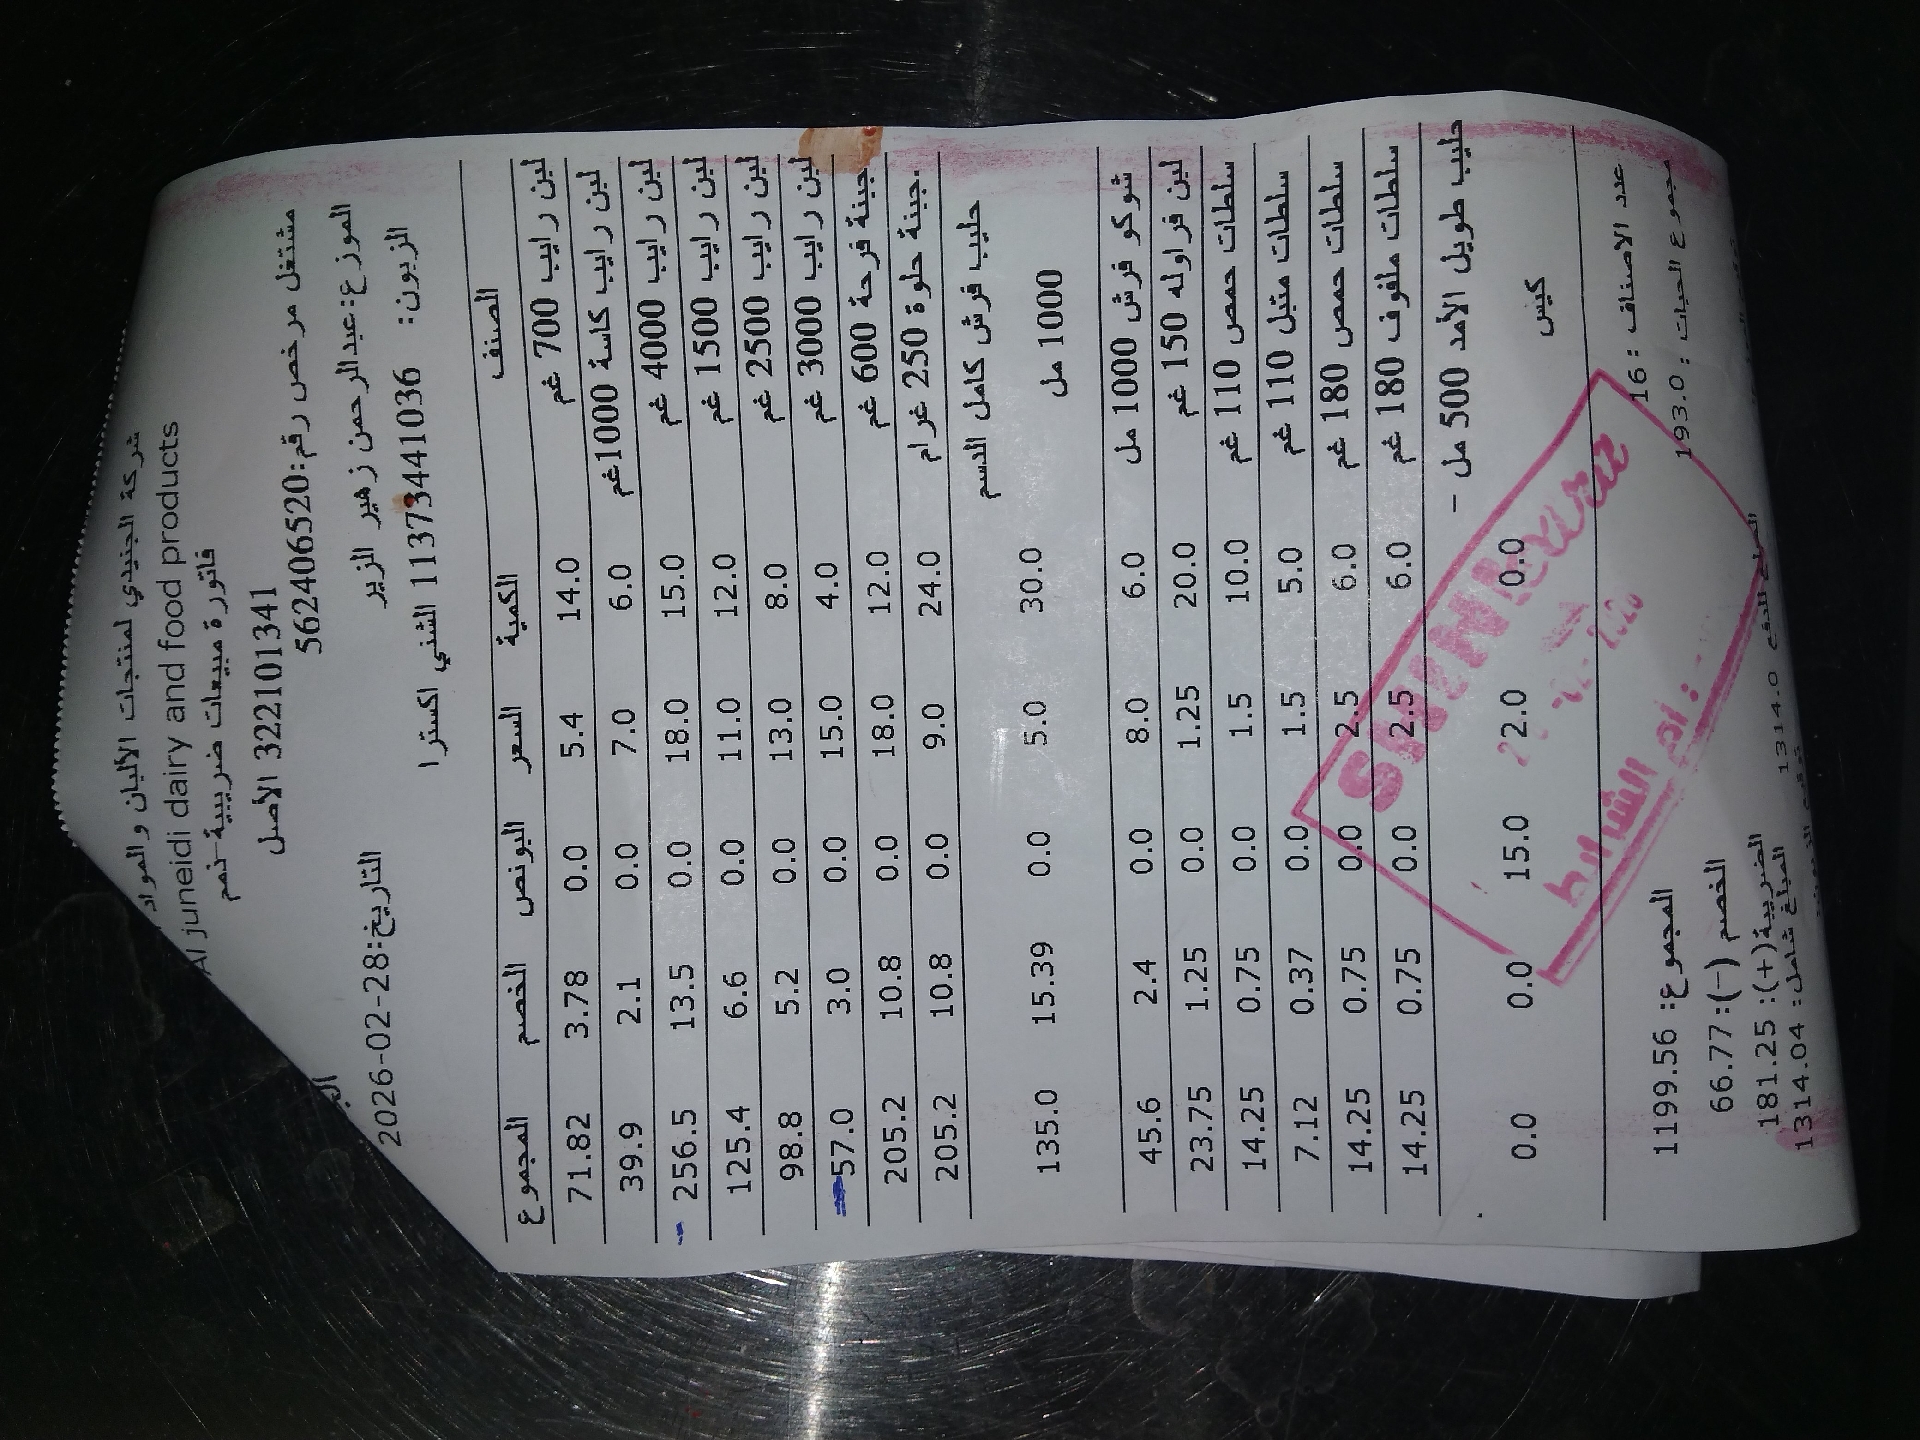 شركة الجنيدي لمنتجات الألبان والمواد
Al juneidi dairy and food products
فاتورة مبيعات ضريبية-نعم
322101341 الأصل
مشتغل مرخص رقم:562406520
الموزع:عبدالرحمن زهير الزير
التاريخ:2026-02-28
الزبون: 1137344 1036 الشني اكسترا
الصنف الكمية السعر البونص الخصم المجموع
لبن رايب 700 غم 14.0 5.4 0.0 3.78 71.82
لبن رايب كاسة 1000غم 6.0 7.0 0.0 2.1 39.9
لبن رايب 4000 غم 15.0 18.0 0.0 13.5 256.5
لبن رايب 1500 غم 12.0 11.0 0.0 6.6 125.4
لبن رايب 2500 غم 8.0 13.0 0.0 5.2 98.8
لبن رايب 3000 غم 4.0 15.0 0.0 3.0 57.0
جبنة فرحة 600 غم 12.0 18.0 0.0 10.8 205.2
جبنة حلوة 250 غرام 24.0 9.0 0.0 10.8 205.2
حليب فرش كامل الدسم
1000 مل 30.0 5.0 0.0 15.39 135.0
شوكو فرش 1000 مل 6.0 8.0 0.0 2.4 45.6
لبن فراوله 150 غم 20.0 1.25 0.0 1.25 23.75
سلطات حمص 110 غم 10.0 1.5 0.0 0.75 14.25
سلطات متبل 110 غم 5.0 1.5 0.0 0.37 7.12
سلطات حمص 180 غم 6.0 2.5 0.0 0.75 14.25
سلطات ملفوف 180 غم 6.0 2.5 0.0 0.75 14.25
حليب طويل الأمد 500 مل -
كيس 0.0 2.0 15.0 0.0 0.0
عدد الاصناف : 16
المجموع: 1199.56
مجموع الحبات : 193.0
الخصم (-): 66.77
الضريبة(+): 181.25
المبلغ شامل: 1314.04
1314.0